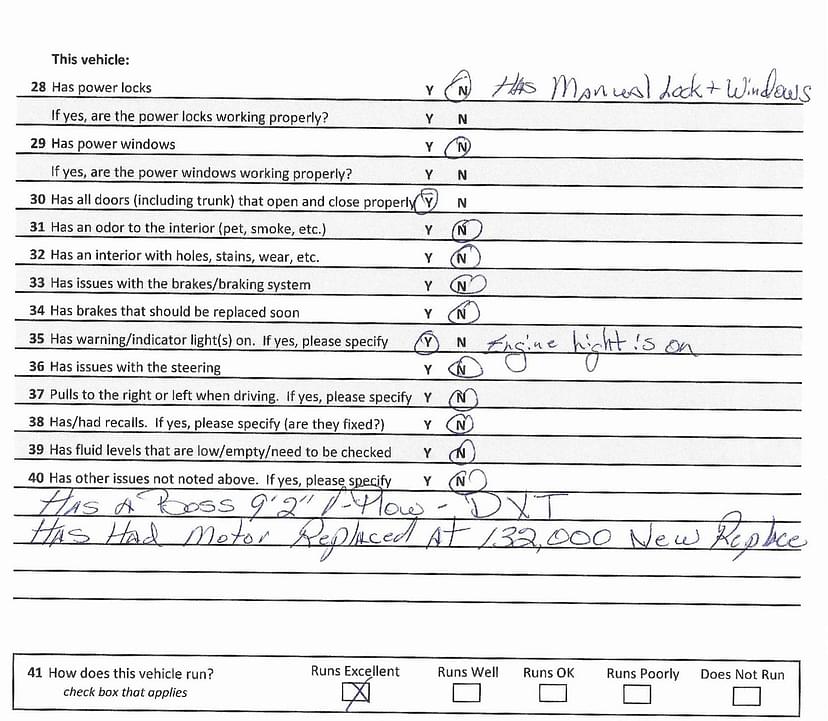 This vehicle:
28 Has power locks Y N Has Manual Lock + Windows
If yes, are the power locks working properly? Y N
29 Has power windows Y N
If yes, are the power windows working properly? Y N
30 Has all doors (including trunk) that open and close properly Y N
31 Has an odor to the interior (pet, smoke, etc.) Y N
32 Has an interior with holes, stains, wear, etc. Y N
33 Has issues with the brakes/braking system Y N
34 Has brakes that should be replaced soon Y N
35 Has warning/indicator light(s) on. If yes, please specify Y N Engine light is on
36 Has issues with the steering Y N
37 Pulls to the right or left when driving. If yes, please specify Y N
38 Has/had recalls. If yes, please specify (are they fixed?) Y N
39 Has fluid levels that are low/empty/need to be checked Y N
40 Has other issues not noted above. If yes, please specify Y N
Has A Boss 9'2" V-Plow - DXT
Has Had Motor Replaced At 132,000 New Replace
41 How does this vehicle run? Runs Excellent Runs Well Runs OK Runs Poorly Does Not Run
check box that applies X